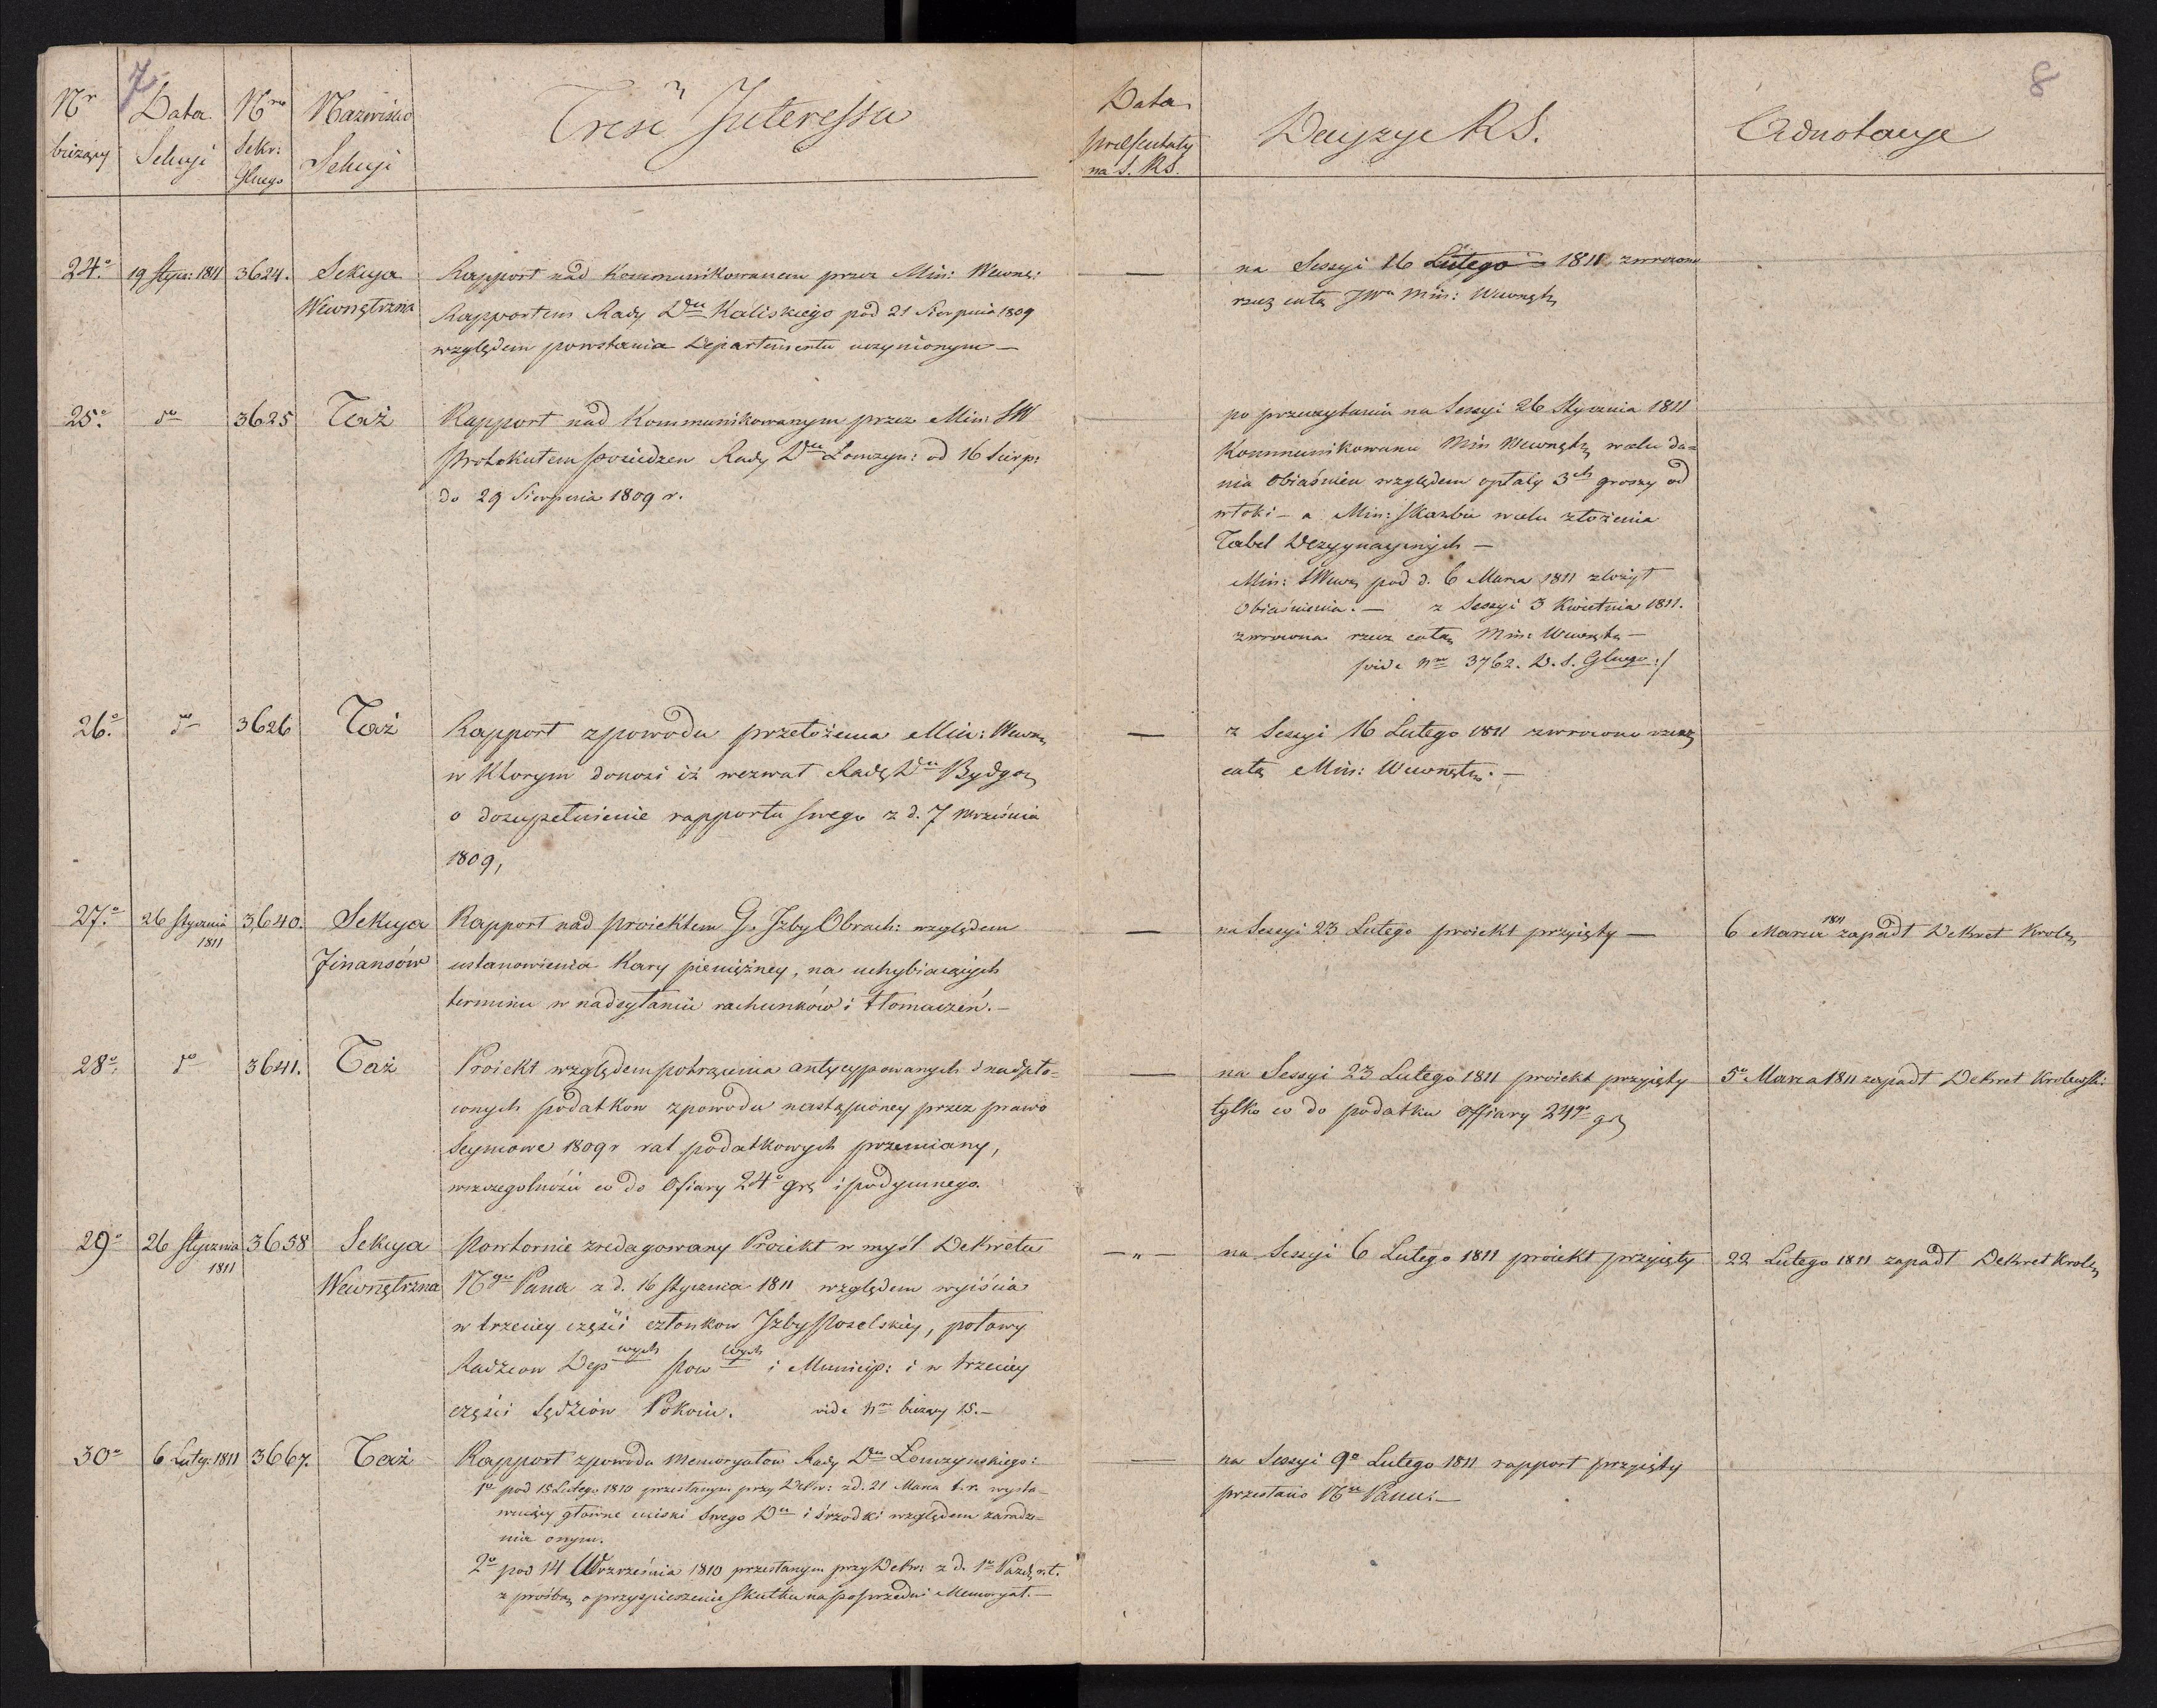 7
8
Nr bieżący
Data Sekcyi
Nro Sekr: Głnego
Nazwisko Sekcyi
Treść Interessu
Data praesentaty na S. RS.
Decyzye RS.
Adnotacye
24.o 19 Stycz: 1811 3624. Sekcya Wewnętrzna
Rapport nad kommunikowanem przez Min: Wewnę:
Rapportem Rady Dtu Kaliskiego pod 21 Sierpnia 1809
względem powstania Departamentu uczynionym —
—
na Sessyi 16 Lutego 1811 zwrocono
rzecz całą JWu Min: Wewnętz
25.o do 3625 Taż
Rapport nad Kommunikowanym przez Min: SW
Protokułem posiedzeń Rady Dtu Łomżyn: od 16 Sierp:
do 29 Sierpnia 1809 r.
—
po przeczytaniu na Sessyi 26 Stycznia 1811
Kommunikowano Min Wewnętz w celu da=
nia Obiaśnień względem opłaty 3ch groszy od
włoki – a Min: Skarbu w celu złożenia
Tabel Dezygnacyinych —
Min: SWewn pod d. 6 Marca 1811 złożył
Obiaśnienia. — z Sessyi 3 Kwietnia 1811.
zwrocona rzecz całą Min: Wewnętz —
vide Nro 3762. D. S. Głnego :/
26.o do 3626 Taż
Rapport z powodu przełożenia Min: Wewn
w Którym donosi iż wezwał Radę Dtu Bydgo
o dozupełnienie rapportu swego z d. 7 Września
1809,
—
z Sessyi 16 Lutego 1811 zwrocono rzecz
całą Min: Wewnętrz. —
27.o 26 Stycznia 1811 3640. Sekcya Finansów
Rapport nad proiektem G. Izby Obrach: względem
ustanowienia Kary pieniężney, na uchybiaiących
terminu w nadsyłaniu rachunków i tłomaczeń. —
—
na Sessyi 23 Lutego proiekt przyięty —
6 Marca 1811 zapadł Dekret Krole
28.o do 3641. Taż
Proiekt względem potrącenia antycypowanych i nadpła-
conych podatkow z powodu nastąpioney przez prawo
Seymowe 1809 r rat podatkowych przemiany,
wszczegolności co do Ofiary 24o gr i podymnego.
—
na Sessyi 23 Lutego 1811 proiekt przyięty
tylko co do podatku Offiary 24go gr
5o Marca 1811 zapadł Dekret Krolewski:
29o 26 Stycznia 1811 3658 Sekcya Wewnętrzna
Powtornie zredagowany Proiekt w myśl Dekretu
Ngo Pana z d. 16 Stycznia 1811 względem wyiścia
w trzeciey części członkow Izby Poselskiey, połowy
Radzcow Depwych Powwych i Municip: i w trzeciey
części Sędziów Pokoiu. vide Nro bieżący 15. —
— „ —
na Sessyi 6 Lutego 1811 proiekt przyięty
22 Lutego 1811 zapadł Dekret Krole
30o 6 Luteg: 1811 3667. Taż
Rapport z powodu Memoryałow Rady Dtu Łomzynskiego:
1o pod 15 Lutego 1810 przesłanym przy Dekr: z d. 21 Marca t. r. wysta-
wuiący głowne uciski swego Dtu i środki względem zaradze-
nia onym.
2o pod 14 Września 1810 przesłanym przy Dekr: z d. 1o Paźd r. t.
z prośbą o przyspieszenie Skutku na poprzedni Memoryał. —
—
na Sessyi 9o Lutego 1811 rapport przyięty
przesłano Nmu Panu: —